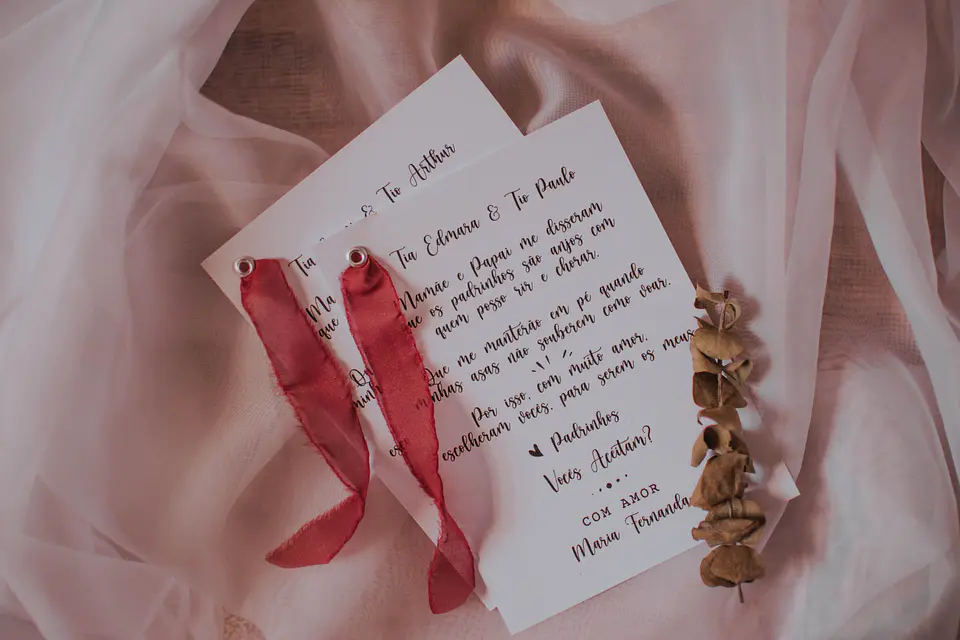 Tio Arthur
Tia
Ma
que
Tia Edmara & Tio Paulo
Mamãe e Papai me disseram
que os padrinhos são anjos com
quem posso rir e chorar.
Que me manterão em pé quando
minhas asas não souberem como voar.
Por isso, com muito amor,
escolheram vocês, para serem os meus
Padrinhos
Vocês Aceitam?
COM AMOR
Maria Fernanda